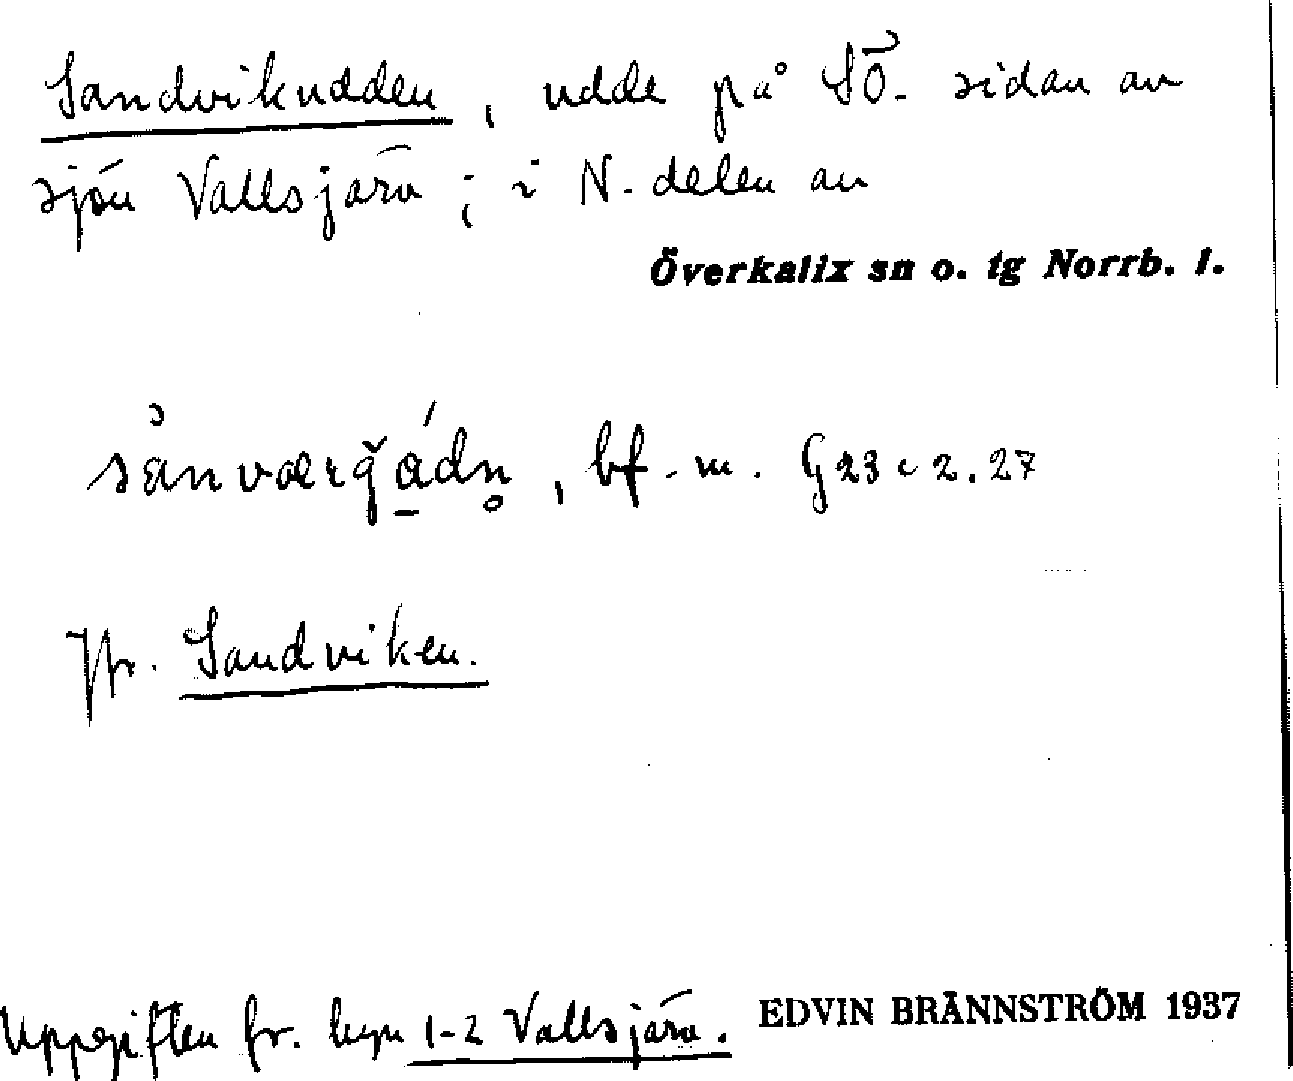 Sandvikudden, udde på SÖ- sidan av
sjön Vallsjärv; i N-delen av
Överkalix sn o. tg Norrb. l.
bf. m. G 23 c 2. 27
Jfr. Sandviken.
Uppgiften fr. byn 1-2 Vallsjärv. EDVIN BRÄNNSTRÖM 1937